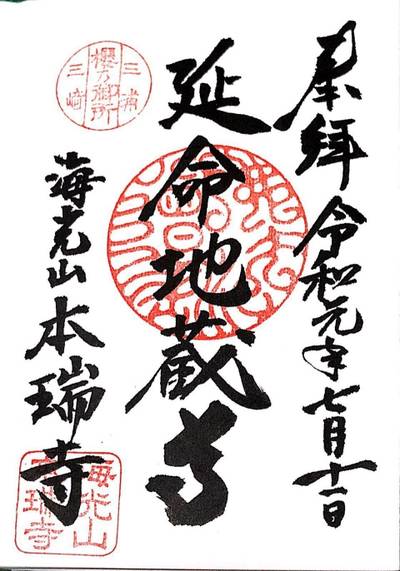 奉拝 令和元年七月十一日
延命地蔵尊
三浦
櫻乃御所
三崎
海光山本瑞寺
海光山
本瑞寺